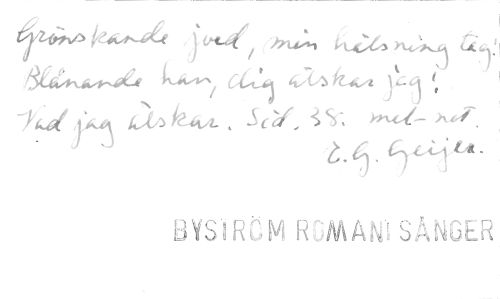 Grönskande jord, min hälsning tag!
Blånande hav, dig älskar jag!
Vad jag älskar. Sid. 38. mel-not.
E. G. Geijer.
BYSTRÖM ROMANI SÅNGER